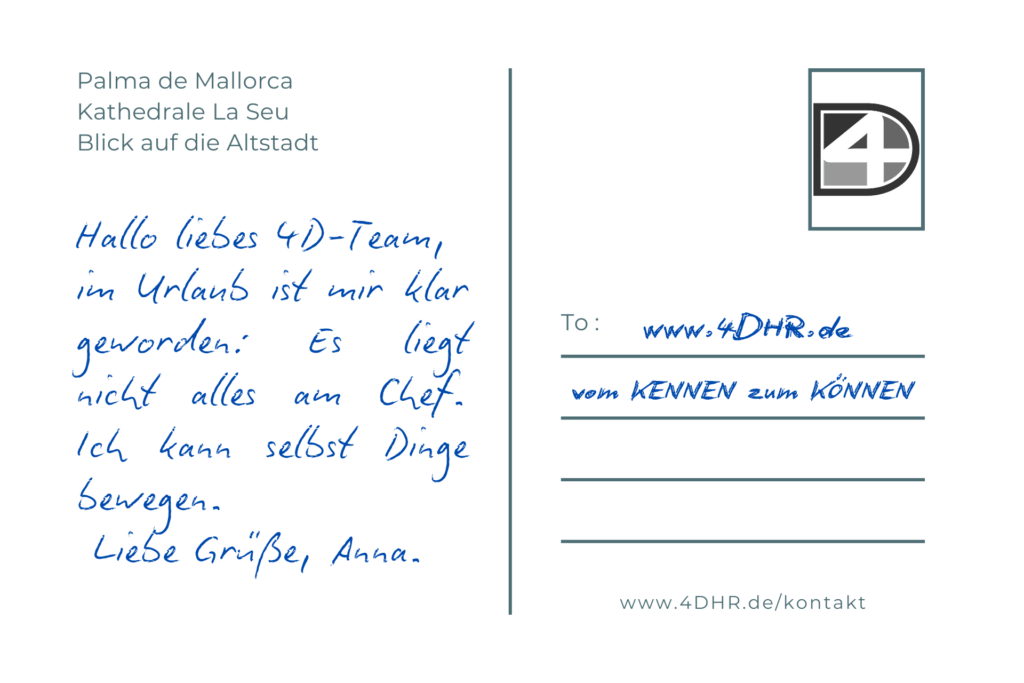 Palma de Mallorca
Kathedrale La Seu
Blick auf die Altstadt
Hallo liebes 4D-Team,
im Urlaub ist mir klar
geworden: Es liegt
nicht alles am Chef.
Ich kann selbst Dinge
bewegen.
Liebe Grüße, Anna.
4D
To : www.4DHR.de
vom KENNEN zum KÖNNEN
www.4DHR.de/kontakt